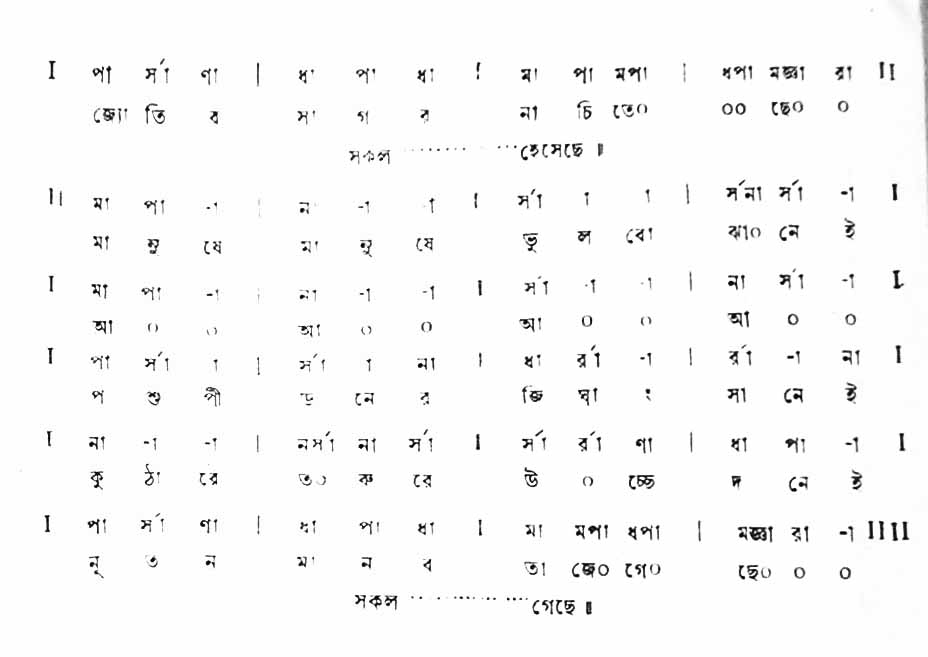 I পা র্সা ণা | ধা পা ধা I মা পা মপা | ধপা মজ্ঞা রা II
জ্যো তি র সা গ র না চি তে০ ০০ ছে০ ০
সকল ··················হেসেছে ॥
II মা পা -া | না -া -া I র্সা া া | র্সনা র্সা -া I
মা নু ষে মা নু ষে ভু ল বো ঝা০ নে ই
I মা পা -া | না -া -া I র্সা -া -া | না র্সা -া I
আ ০ ০ আ ০ ০ আ ০ ০ আ ০ ০
I পা র্সা া | র্সা া না I ধা র্রা -া | র্রা -া না I
প শু পী ড় নে র জি ঘাং সা নে ই
I না -া -া | নর্সা না র্সা I র্সা র্রা ণা | ধা পা -া I
কু ঠা রে ত০ রু রে উ ০ চ্ছে দ নে ই
I পা র্সা ণা | ধা পা ধা I মা মপা ধপা | মজ্ঞা রা -া IIII
নূ ত ন মা ন ব তা জে০ গে০ ছে০ ০ ০
সকল ··················গেছে ॥